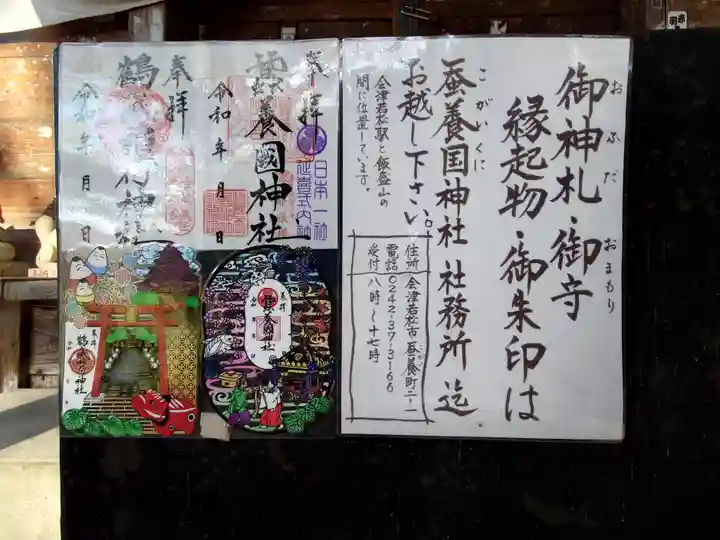 御神札・御守
おふだ
おまもり
縁起物・御朱印は
蚕養国神社 社務所 迄
こがいくに
お越し下さい。
会津若松駅と飯盛山の
間に位置しています。
住所 会津若松市蚕養町二-一
電話 0242-37-3166
受付 八時〜十七時
奉拝
日本一社
延喜式内社
蚕養國神社
令和 年 月 日
奉拝
鶴
神社
令和 年 月 日
奉拝
蚕養國神社
奉拝
鶴
神社